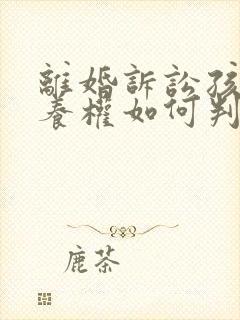 離婚訴訟孩
養權如何判
鹿茶